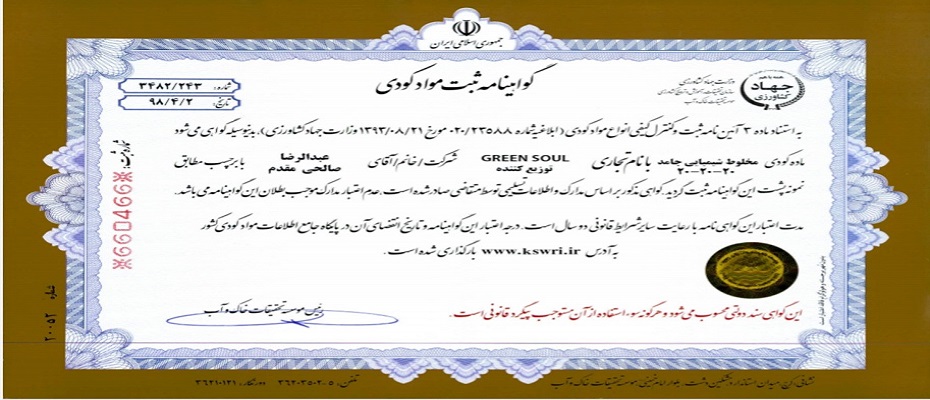 جمهوری اسلامی ایران
گواهینامه ثبت مواد کودی
شماره: ۳۴۸۲/۲۴۳
تاریخ: ۹۸/۴/۲
همه با هم
جهاد
کشاورزی
وزارت جهاد کشاورزی
سازمان تحقیقات، آموزش و ترویج کشاورزی
موسسه تحقیقات خاک و آب
به استناد ماده ۳ آئین نامه ثبت و کنترل کیفی انواع مواد کودی (ابلاغیه شماره ۰۲۰/۲۳۵۸۸ مورخ ۱۳۹۳/۰۸/۲۱ وزارت جهاد کشاورزی)، بدینوسیله گواهی می شود
ماده کودی مخلوط شیمیایی جامد ۲۰-۲۰-۲۰ با نام تجاری GREEN SOUL توزیع کننده شرکت/خانم/آقای عبدالرضا صالحی مقدم با برچسب مطابق
نمونه پشت این گواهینامه ثبت گردید. گواهی مذکور بر اساس مدارک و اطلاعات تسلیمی توسط متقاضی صادر شده است. عدم اعتبار مدارک موجب بطلان این گواهینامه می باشد.
مدت اعتبار این گواهی نامه با رعایت سایر شرایط قانونی دو سال است. درجه اعتبار این گواهینامه و تاریخ انقضای آن در پایگاه جامع اطلاعات مواد کودی کشور
به آدرس www.kswri.ir بارگذاری شده است.
رئیس موسسه تحقیقات خاک و آب
این گواهی سند دولتی محسوب می شود و هرگونه سوء استفاده از آن مستوجب پیگرد قانونی است.
شماره ثبت:
※66046※
شماره ۲۰۰۵۲
نشانی: کرج، میدان استاندارد، مشکین دشت، بلوار امام خمینی، موسسه تحقیقات خاک و آب
تلفن: ۵-۳۶۲۰۳۵۰۲ دورنگار: ۳۶۲۱۰۱۲۱